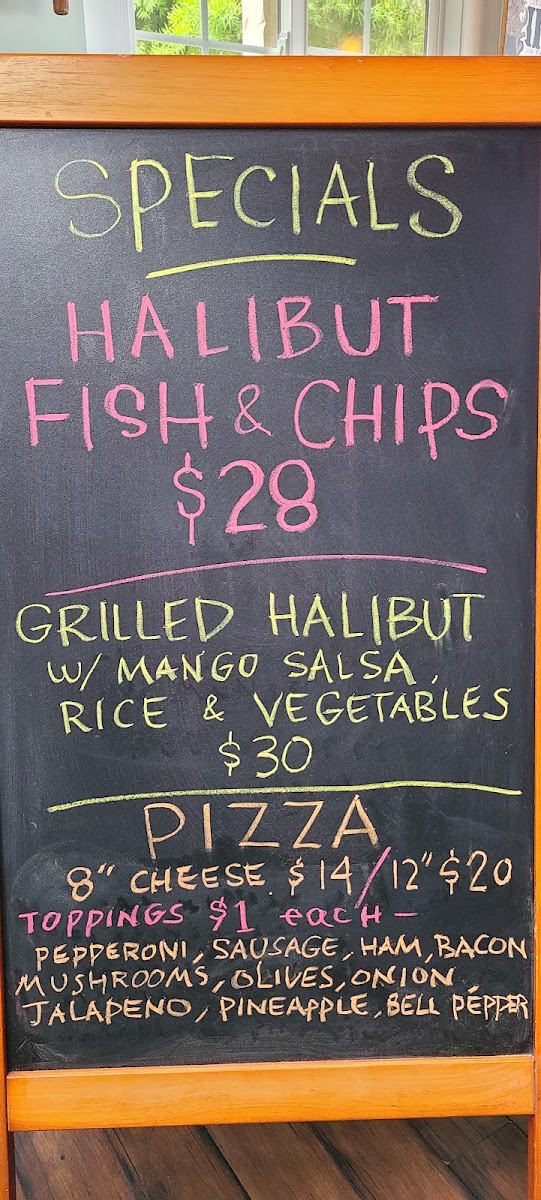 SPECIALS
HALIBUT
FISH & CHIPS
$28
GRILLED HALIBUT
W/ MANGO SALSA,
RICE & VEGETABLES
$30
PIZZA
8" CHEESE $14/12" $20
TOPPINGS $1 eacH -
PEPPERONI, SAUSAGE, HAM, BACON
MUSHROOMS, OLIVES, ONION,
JALAPENO, PINEAPPLE, BELL PEPPER